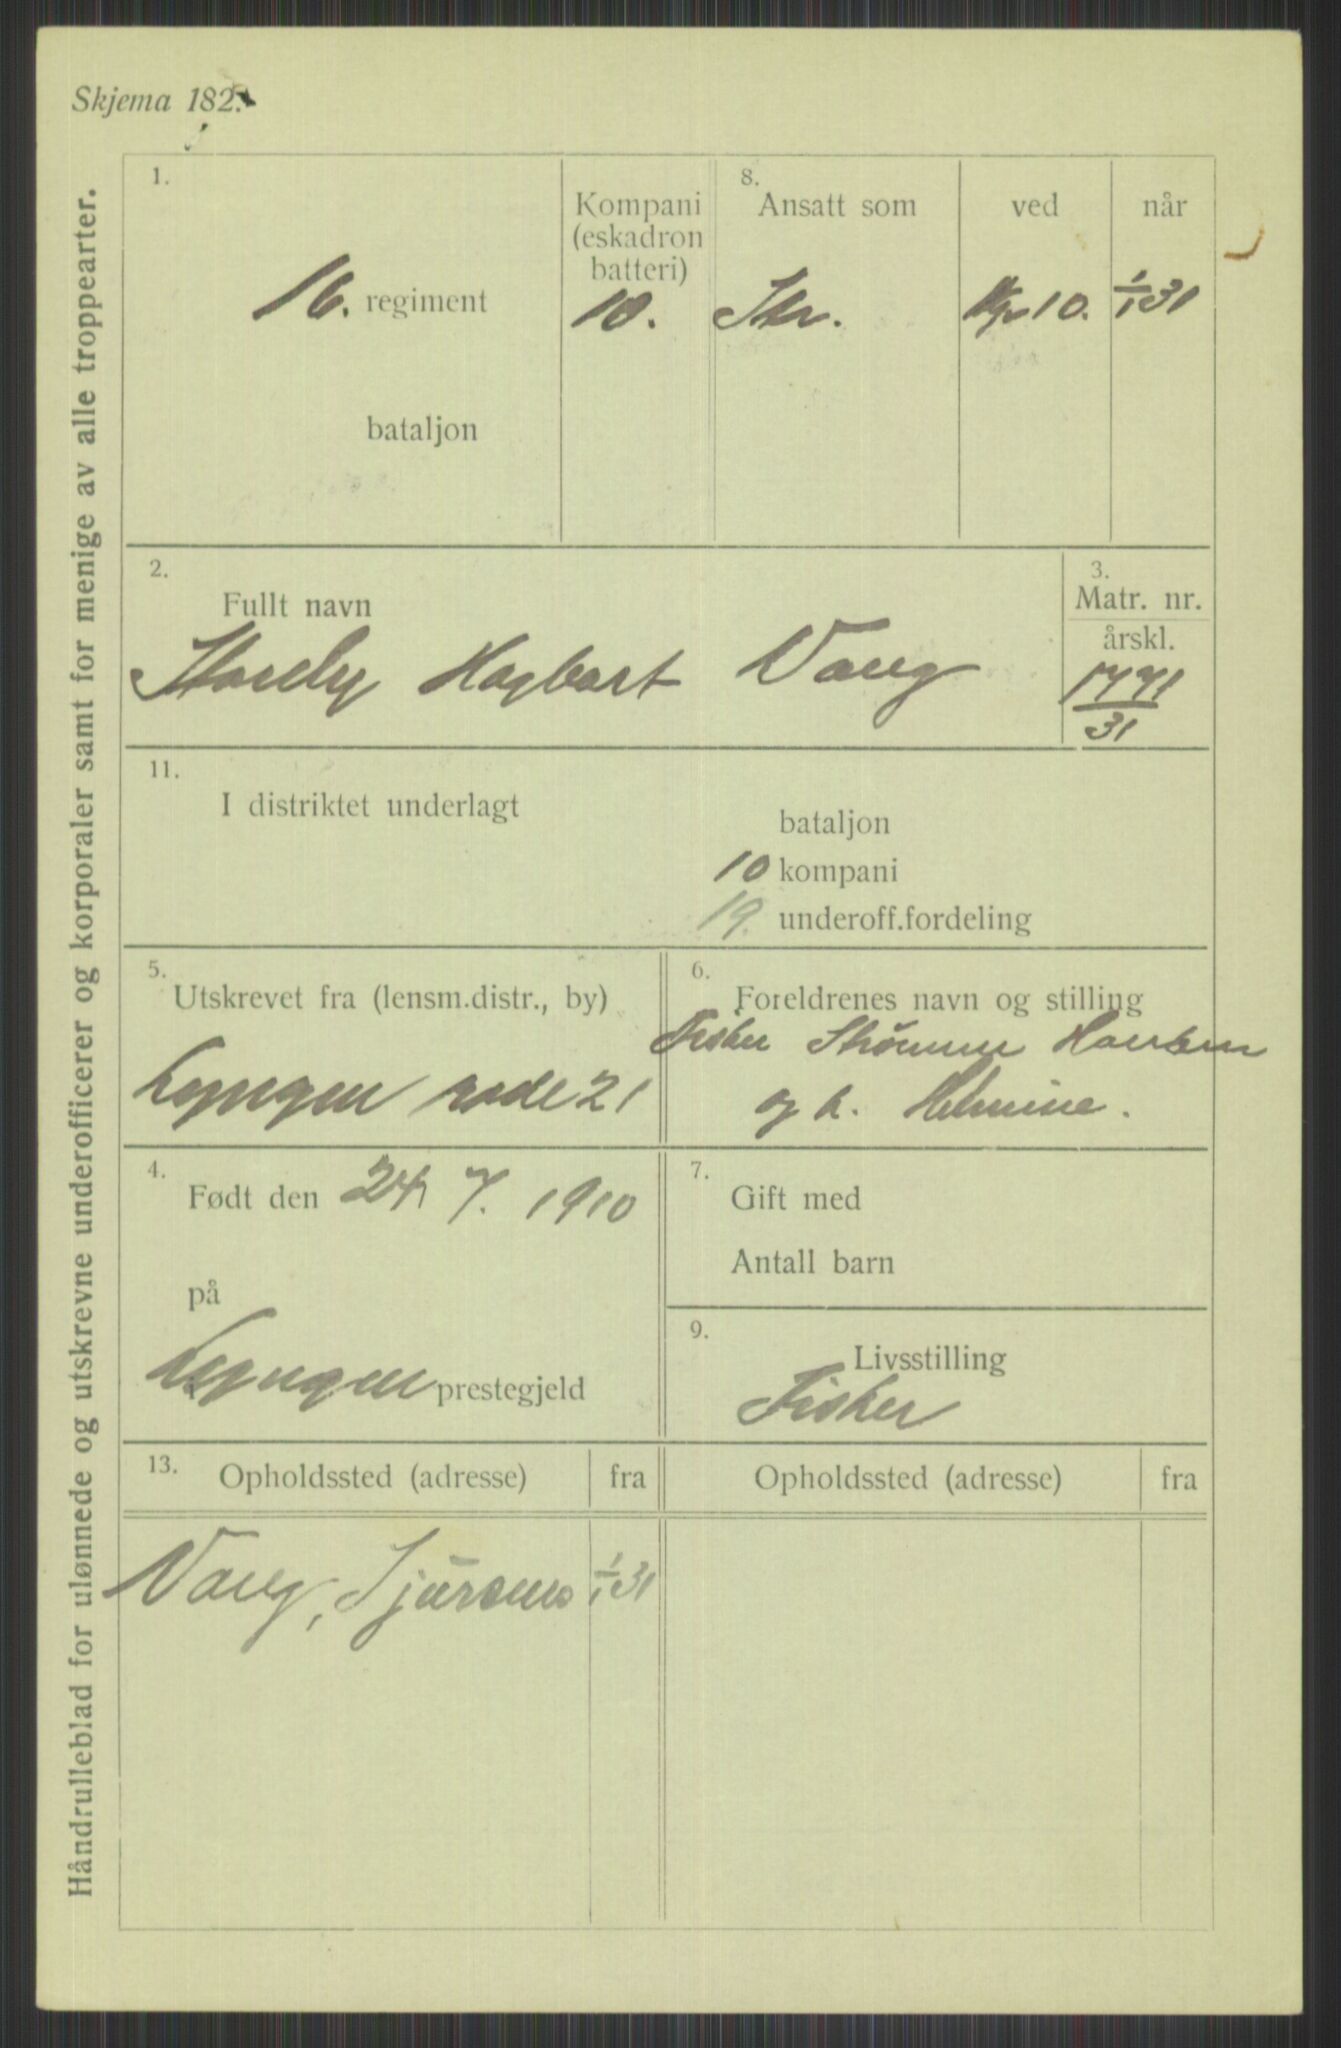 Skjema 182.
Håndrulleblad for ulønnede og utskrevne underofficerer og korporaler samt for menige av alle troppearter.
1.
16. regiment
bataljon
Kompani
(eskadron
batteri)
10.
8.
Ansatt som
ved
når
Str.
Kp 10.
1/1 31
2.
Fullt navn
Hagbart Vang
3.
Matr. nr.
årskl.
1771
31
11.
I distriktet underlagt
bataljon
10 kompani
19. underoff.fordeling
5.
Utskrevet fra (lensm.distr., by)
Lyngen rode 21
6.
Foreldrenes navn og stilling
Fisker Strømme Hansen
og h. Helmine.
4.
Født den 24 7. 1910
på
Lyngen prestegjeld
7.
Gift med
Antall barn
9.
Livsstilling
Fisker
13.
Opholdssted (adresse)
fra
Opholdssted (adresse)
fra
Vang, 1/1 31